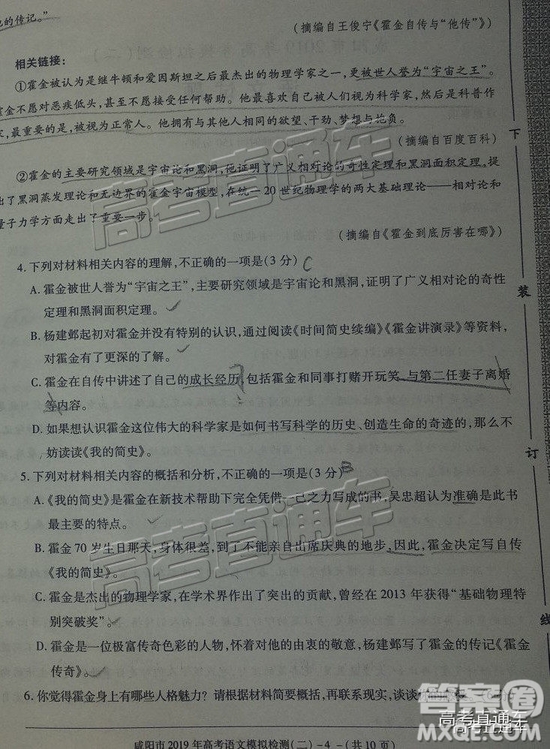 的传记。”
(摘编自王俊宁《霍金自传与“他传”》)
相关链接:
①霍金被认为是继牛顿和爱因斯坦之后最杰出的物理学家之一,更被世人誉为“宇宙之王”。
霍金不愿对恶疾低头,甚至不愿接受任何帮助。他最喜欢自己被视为科学家,然后是科普作
家,最重要的是,被视为正常人。他拥有与其他人相同的欲望、干劲、梦想与抱负。
(摘编自百度百科)
②霍金的主要研究领域是宇宙论和黑洞,他证明了广义相对论的奇性定理和黑洞面积定理,提
出了黑洞蒸发理论和无边界的霍金宇宙模型,在统一20世纪物理学的两大基础理论——相对论和
量子力学方面走出了重要一步。
(摘编自《霍金到底厉害在哪》)
4. 下列对材料相关内容的理解,不正确的一项是(3分) C
A. 霍金被世人誉为“宇宙之王”,主要研究领域是宇宙论和黑洞,证明了广义相对论的奇性
定理和黑洞面积定理。
B. 杨建邺起初对霍金并没有特别的认识,通过阅读《时间简史续编》《霍金讲演录》等资料,
对霍金有了更深的了解。
C. 霍金在自传中讲述了自己的成长经历,包括霍金和同事打赌开玩笑、与第二任妻子离婚
等内容。
D. 如果想认识霍金这位伟大的科学家是如何书写科学的历史、创造生命的奇迹的,那么不
妨读读《我的简史》。
5. 下列对材料相关内容的概括和分析,不正确的一项是(3分) B
A. 《我的简史》是霍金在新技术帮助下完全凭借一己之力写成的书,吴忠超认为准确是此书
最主要的特点。
B. 霍金70岁生日那天,身体很差,到了不能亲自出席庆典的地步,因此,霍金决定写自传
《我的简史》。
C. 霍金是杰出的物理学家,在学术界作出了突出的贡献,曾经在2013年获得“基础物理特
别突破奖”。
D. 霍金是一位极富传奇色彩的人物,怀着对他的由衷的敬意,杨建邺写了他的传记《霍金
传奇》。
6. 你觉得霍金身上有哪些人格魅力?请根据材料简要概括,再联系现实,谈谈
咸阳市2019年高考语文模拟检测(二)-4-(共10页)
下
装
订
线
高考直通车
高考直通车
答案圈
高考直通车